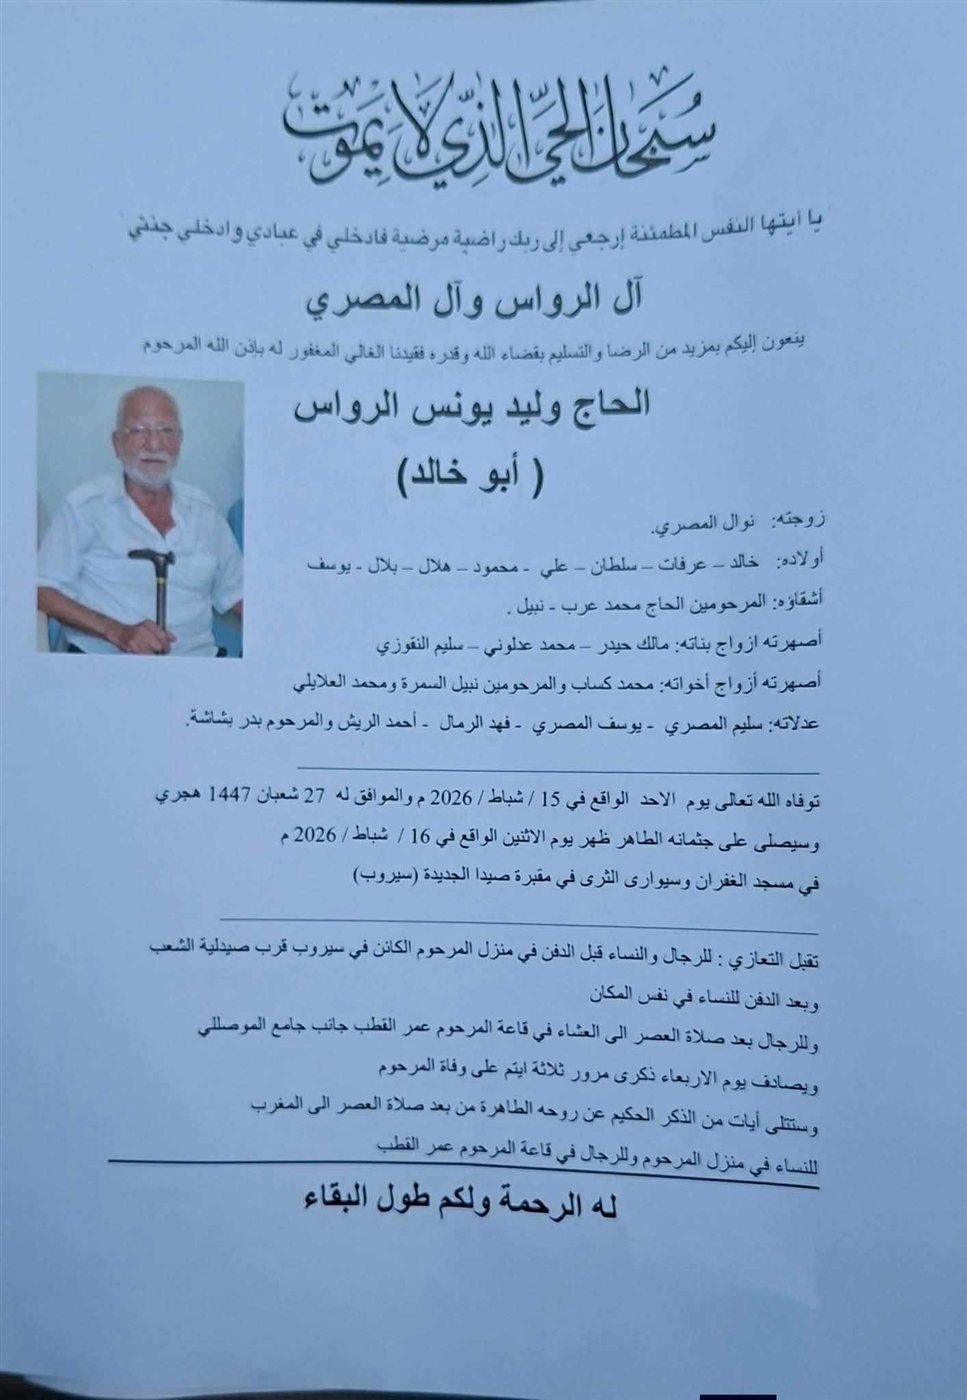 سُبْحَانَ الحَيِّ الَّذِي لَا يَمُوت
يا أيتها النفس المطمئنة إرجعي إلى ربك راضية مرضية فادخلي في عبادي وادخلي جنتي
آل الرواس وآل المصري
ينعون إليكم بمزيد من الرضا والتسليم بقضاء الله وقدره فقيدنا الغالي المغفور له بإذن الله المرحوم
الحاج وليد يونس الرواس
( أبو خالد)
زوجته: نوال المصري.
أولاده: خالد – عرفات – سلطان – علي - محمود – هلال – بلال - يوسف
أشقاؤه: المرحومين الحاج محمد عرب - نبيل .
أصهرته ازواج بناته: مالك حيدر – محمد عدلوني – سليم النقوزي
أصهرته أزواج أخواته: محمد كساب والمرحومين نبيل السمرة ومحمد العلايلي
عدلاته: سليم المصري - يوسف المصري - فهد الرمال - أحمد الريش والمرحوم بدر بشاشة.
توفاه الله تعالى يوم الاحد الواقع في 15 / شباط / 2026 م والموافق له 27 شعبان 1447 هجري
وسيصلى على جثمانه الطاهر ظهر يوم الاثنين الواقع في 16 / شباط / 2026 م
في مسجد الغفران وسيوارى الثرى في مقبرة صيدا الجديدة (سيروب)
تقبل التعازي : للرجال والنساء قبل الدفن في منزل المرحوم الكائن في سيروب قرب صيدلية الشعب
وبعد الدفن للنساء في نفس المكان
وللرجال بعد صلاة العصر الى العشاء في قاعة المرحوم عمر القطب جانب جامع الموصللي
ويصادف يوم الاربعاء ذكرى مرور ثلاثة ايتم على وفاة المرحوم
وستتلى أيات من الذكر الحكيم عن روحه الطاهرة من بعد صلاة العصر الى المغرب
للنساء في منزل المرحوم وللرجال في قاعة المرحوم عمر القطب
له الرحمة ولكم طول البقاء